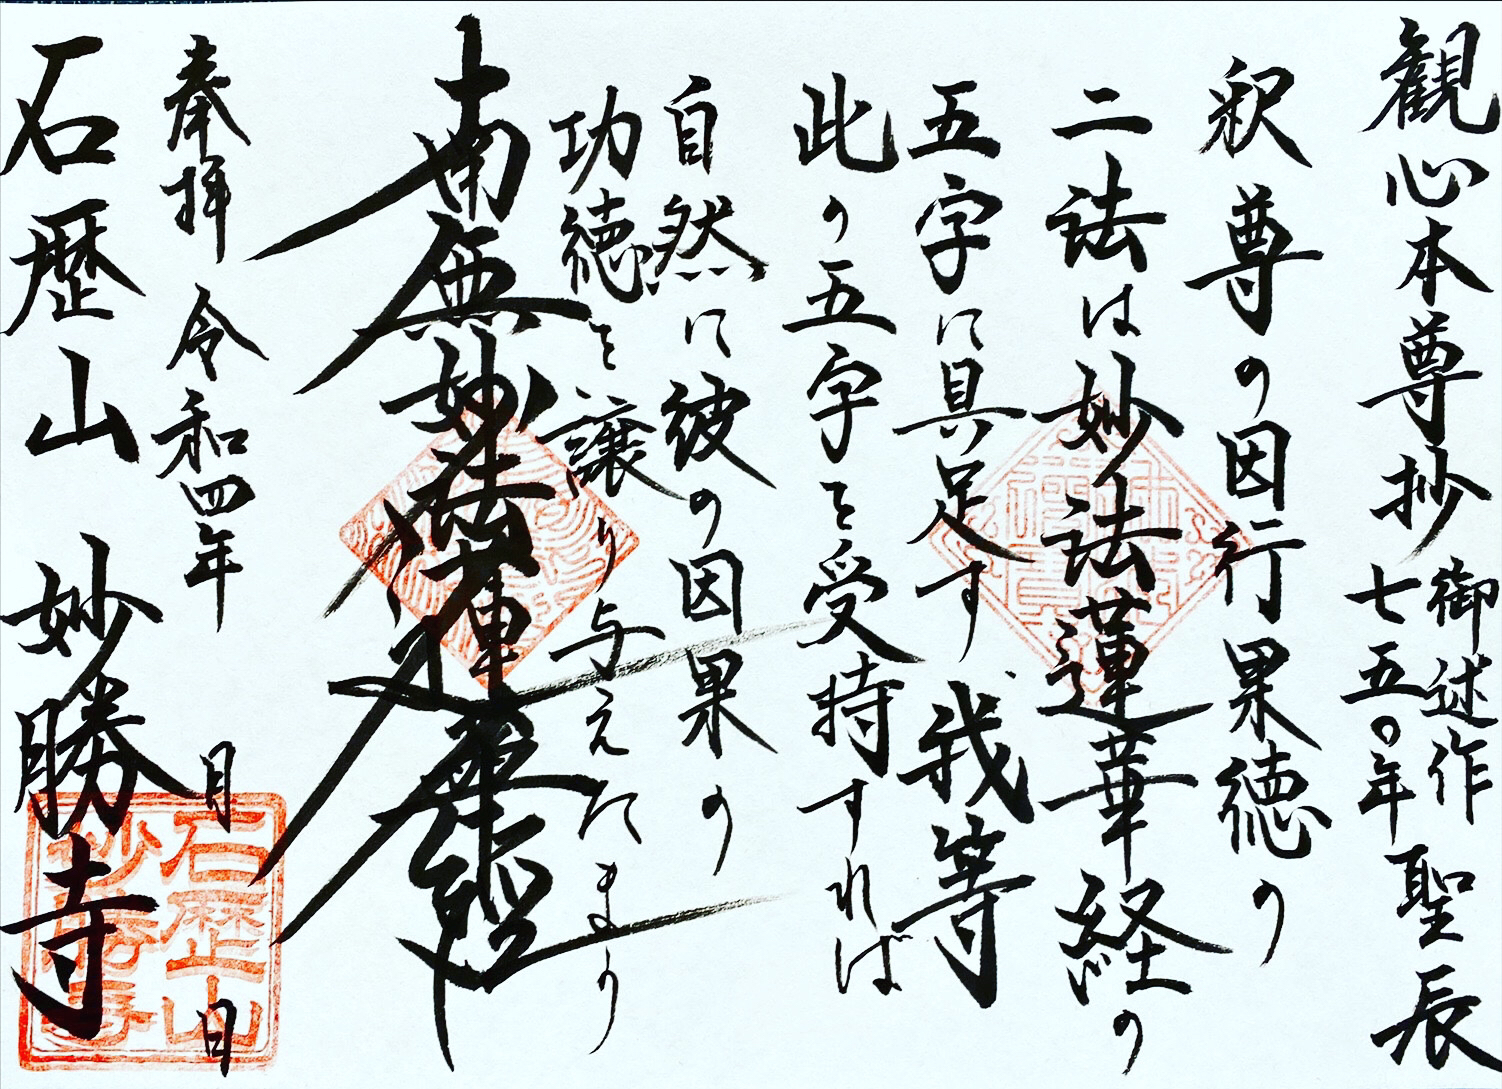 観心本尊抄 御述作七五〇年 聖辰
釈尊の因行果徳の
二法は妙法蓮華経の
五字に具足す 我等
此の五字を受持すれば
自然に彼の因果の
功徳を譲り与えたまう
南無妙法蓮華經
奉拝 令和四年 月 日
石歴山 妙勝寺
石歴山
妙勝寺